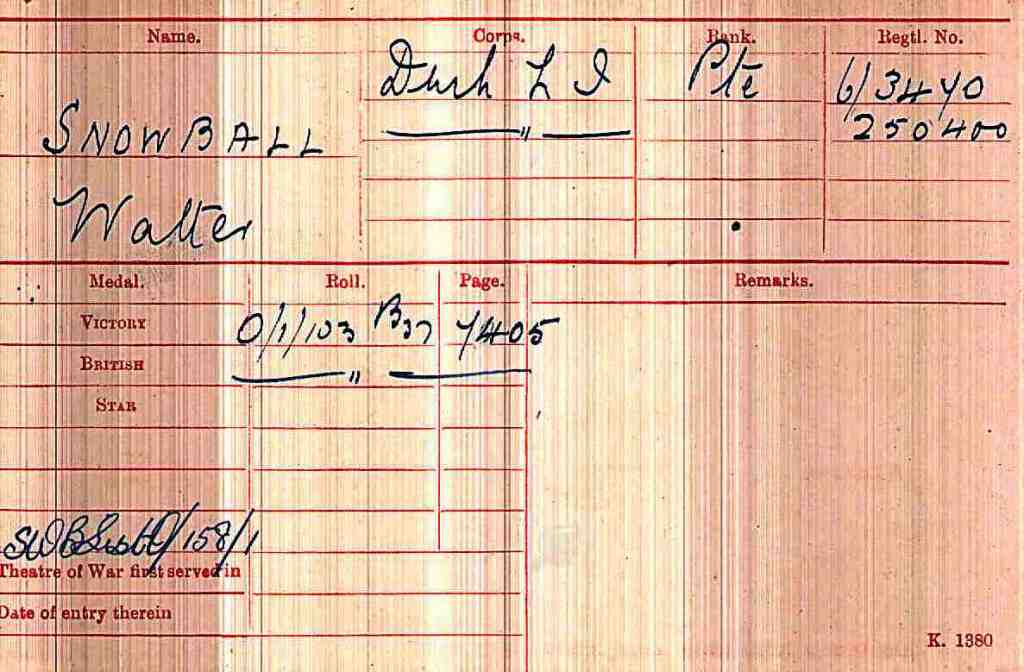 Name. Corps. Rank. Regtl. No.
SNOWBALL Durh L I Pte 6/3440
" 250400
Walter
Medal. Roll. Page. Remarks.
VICTORY O/1/103 B37 7405
BRITISH "
STAR
SWB List O/158/1
Theatre of War first served in
Date of entry therein
K. 1380